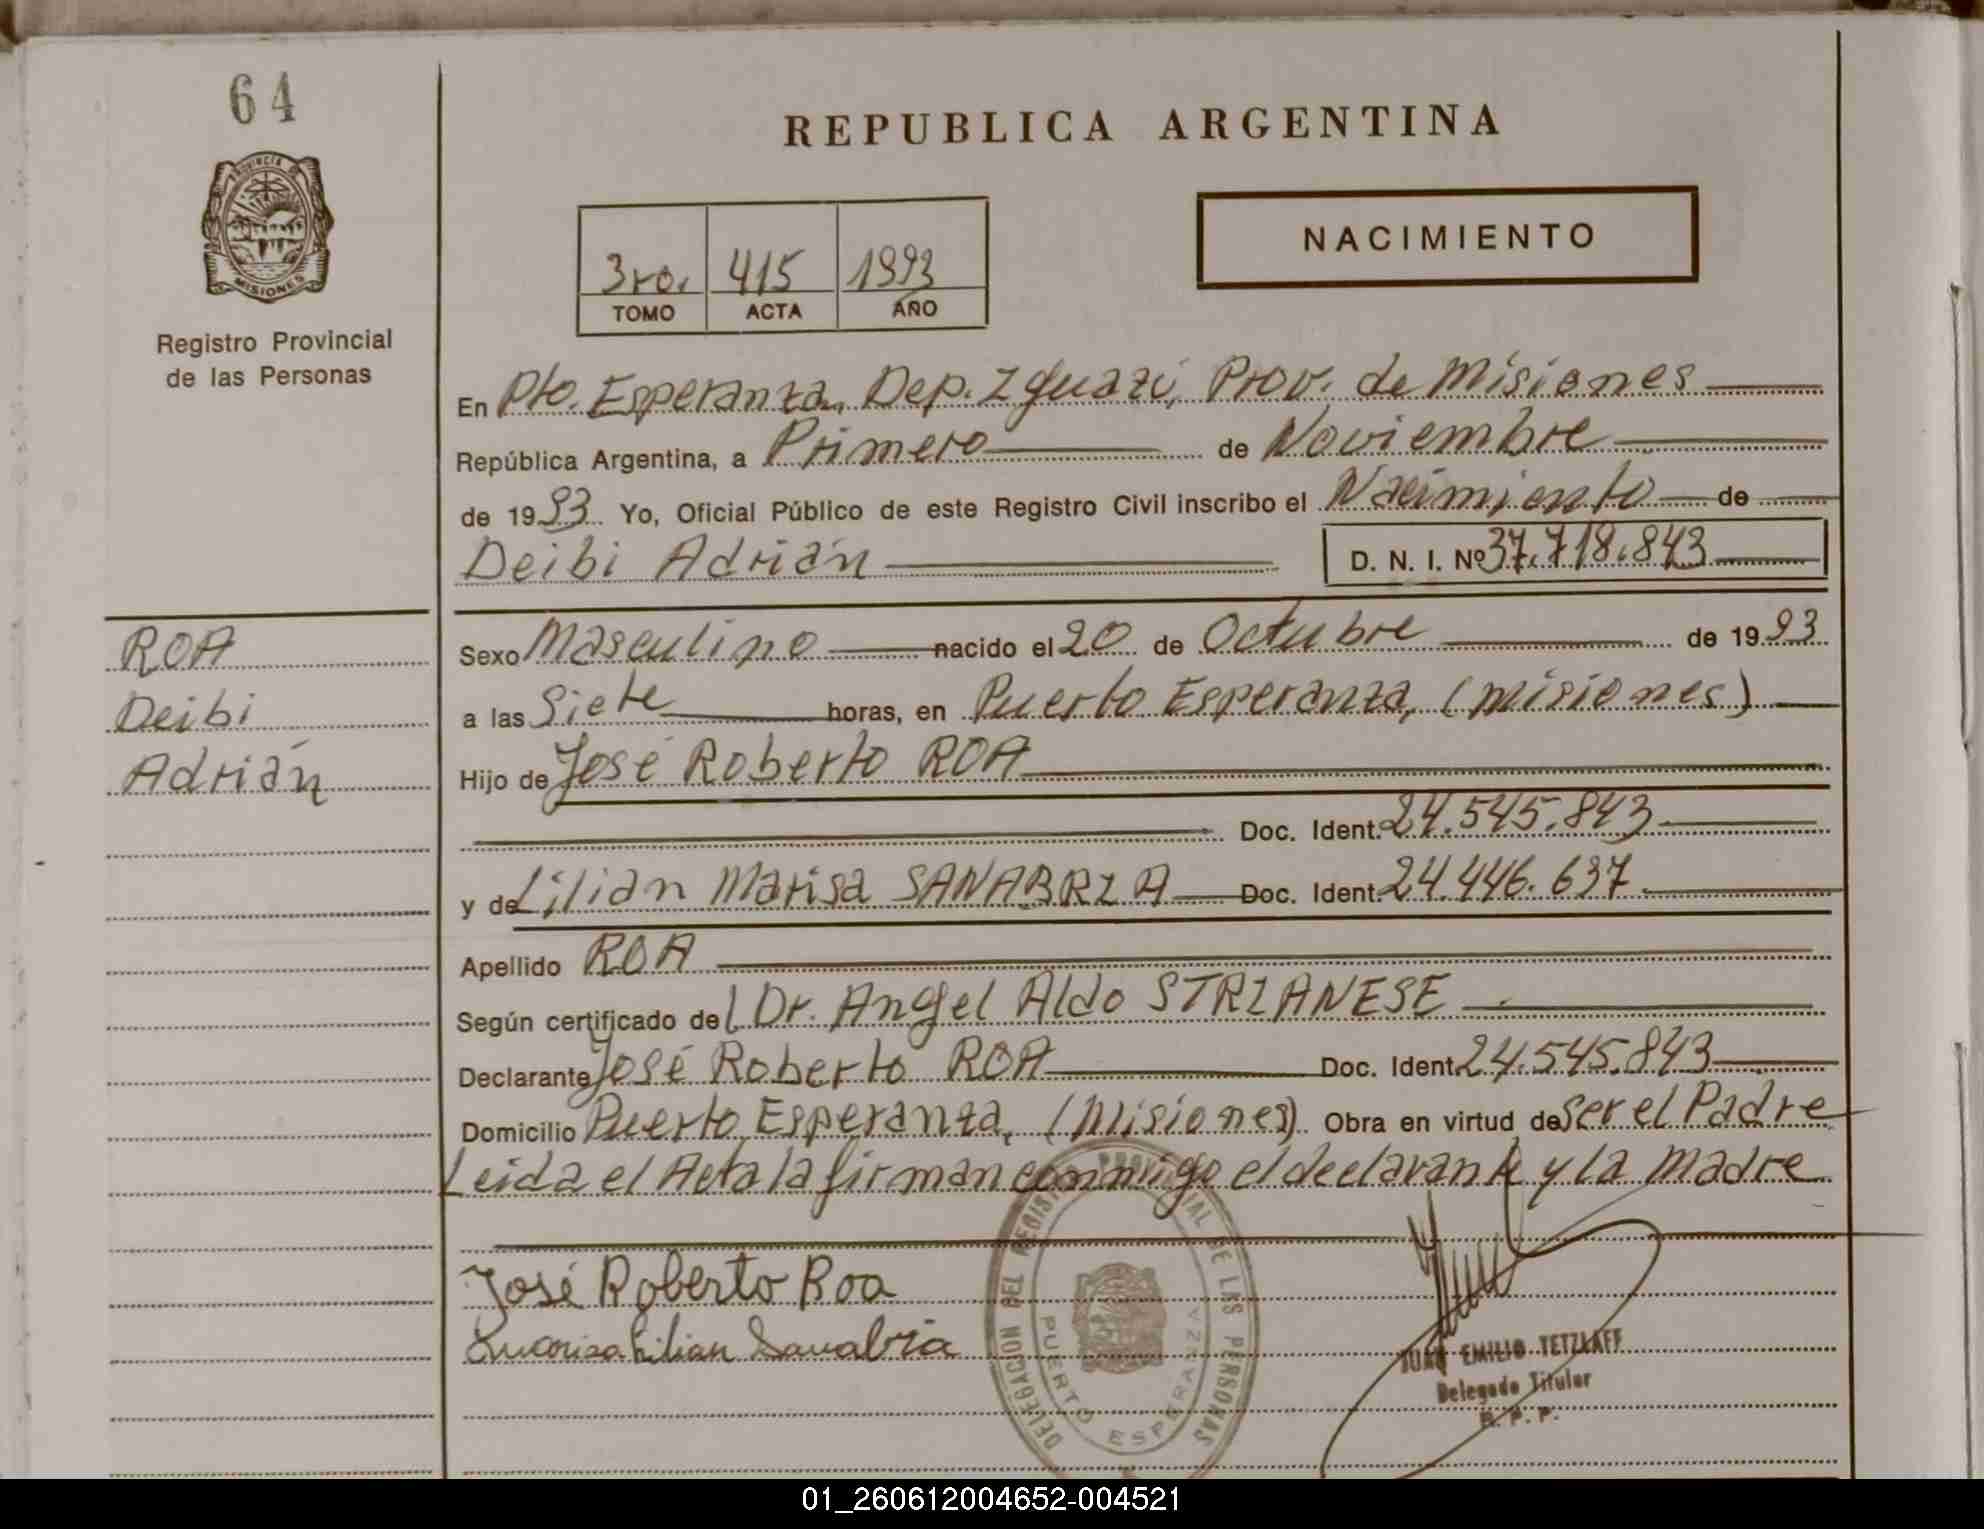 64
REPUBLICA ARGENTINA
PROVINCIA DE
MISIONES
NACIMIENTO
3ro. 415 1993
TOMO ACTA AÑO
Registro Provincial
de las Personas
En Pto. Esperanza, Dep. Iguazú, Prov. de Misiones
República Argentina, a Primero de Noviembre
de 1993 Yo, Oficial Público de este Registro Civil inscribo el Nacimiento de
Deibi Adrián D. N. I. Nº 37.718.843
ROA
Deibi
Adrián
Sexo Masculino nacido el 20 de Octubre de 1993
a las Siete horas, en Puerto Esperanza, (Misiones)
Hijo de José Roberto ROA
Doc. Ident. 24.545.843
y de Lilian Marisa SANABRIA Doc. Ident. 24.446.637
Apellido ROA
Según certificado del Dr. Angel Aldo STRIANESE
Declarante José Roberto ROA Doc. Ident. 24.545.843
Domicilio Puerto Esperanza, (Misiones) Obra en virtud de ser el Padre
Leida el Acta la firman conmigo el declarante y la Madre
José Roberto Roa
Lilian Sanabria
DELEGACION DEL REGISTRO PROVINCIAL DE LAS PERSONAS
PUERTO ESPERANZA
JUAN EMILIO TETZLAFF
Delegado Titular
R. P. P.
01_260612004652-004521